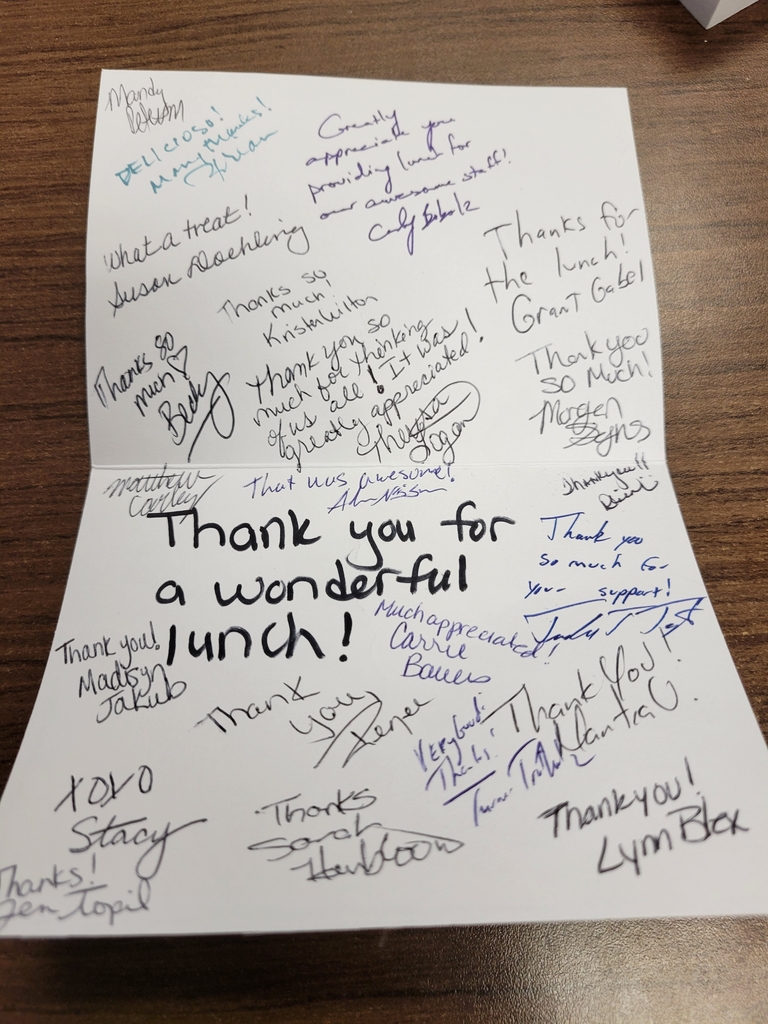 Mandy
DELICIOSO!
Many thanks!
Greatly
appreciate you
providing lunch for
our awesome staff!
What a treat!
Susan Doehling
Thanks so
much!
Krista Wilton
Thanks for
the lunch!
Grant Gabel
Thanks so
much ♡
Becky
Thank you so
much for thinking
of us all! It was
greatly appreciated!
Theresa
Logan
Thank you
so much!
Morgen
Matthew
Carley
That was awesome!
Thank you!!
Thank you for
a wonderful
lunch!
Thank you
so much for
your support!
Thank you!
Madisyn
Jakub
Much appreciated!
Carrie
Thank
you
Renee
Very Good!
Thanks!
Thank You!
XOXO
Stacy
Thanks
Sarah
Thank you!
Lynn Blex
Thanks!
Jen Topil